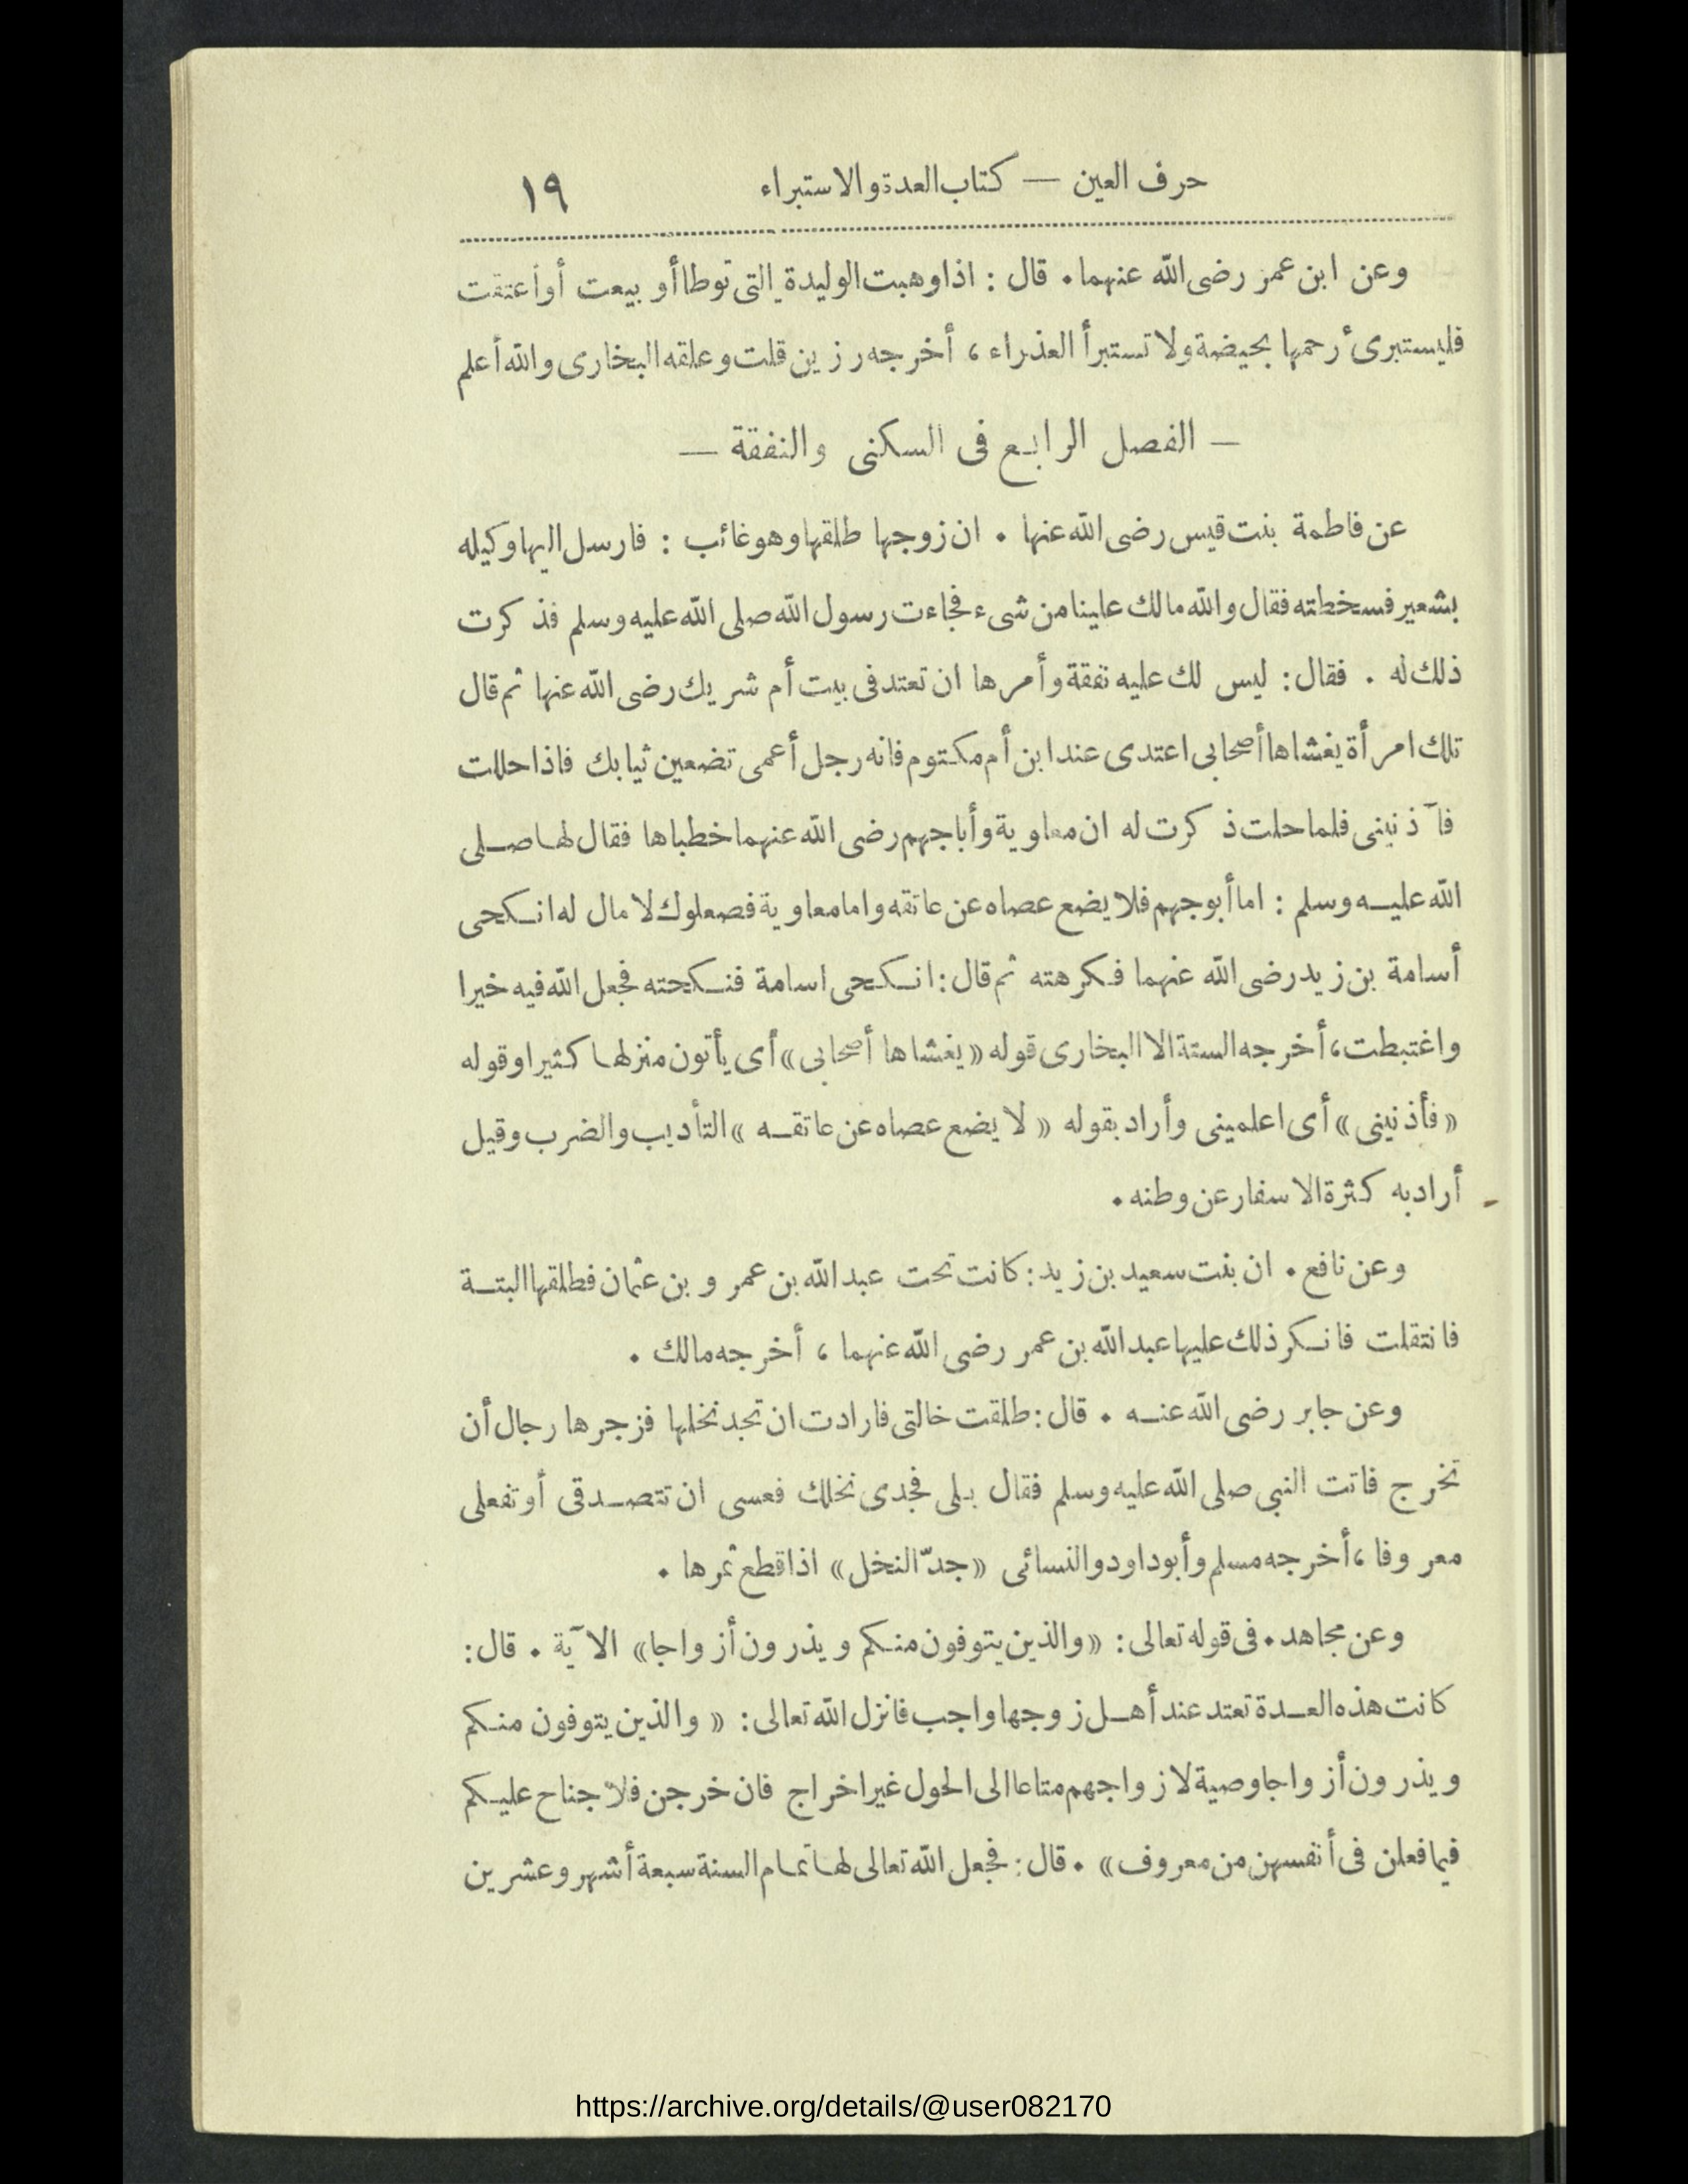 حرف العين — كتاب العدة والاستبراء ١٩
وعن ابن عمر رضى الله عنهما. قال : اذا وهبت الوليدة التى توطا أو بيعت أو أعتقت
فليستبرئ رحمها بحيضة ولا تستبرأ العذراء ، أخرجه رزين قلت وعلقه البخارى والله أعلم
— الفصل الرابع فى السكنى والنفقة —
عن فاطمة بنت قيس رضى الله عنها . ان زوجها طلقها وهو غائب : فارسل اليها وكيله
بشعير فسخطته فقال والله مالك علينا من شىء فجاءت رسول الله صلى الله عليه وسلم فذكرت
ذلك له . فقال: ليس لك عليه نفقة وأمرها ان تعتد فى بيت أم شريك رضى الله عنها ثم قال
تلك امرأة يغشاها أصحابى اعتدى عند ابن أم مكتوم فانه رجل أعمى تضعين ثيابك فاذا حللت
فآذنينى فلما حلت ذكرت له ان معاوية وأبا جهم رضى الله عنهما خطباها فقال لها صلى
الله عليه وسلم : اما أبو جهم فلا يضع عصاه عن عاتقه واما معاوية فصعلوك لا مال له انكحى
أسامة بن زيد رضى الله عنهما فكرهته ثم قال: انكحى اسامة فنكحته فجعل الله فيه خيرا
واغتبطت، أخرجه الستة الا البخارى قوله «يغشاها أصحابى» أى يأتون منزلها كثيرا وقوله
«فأذنينى» أى اعلمينى وأراد بقوله « لا يضع عصاه عن عاتقه » التأديب والضرب وقيل
أراد به كثرة الاسفار عن وطنه.
وعن نافع. ان بنت سعيد بن زيد: كانت تحت عبد الله بن عمرو بن عثمان فطلقها البتة
فانتقلت فانكر ذلك عليها عبد الله بن عمر رضى الله عنهما ، أخرجه مالك .
وعن جابر رضى الله عنه . قال: طلقت خالتى فارادت ان تجد نخلها فزجرها رجال أن
تخرج فاتت النبى صلى الله عليه وسلم فقال بلى فجدى نخلك فعسى ان تتصدقى أو تفعلى
معروفا ، أخرجه مسلم وأبو داود والنسائى «جدّ النخل» اذا قطع ثمرها .
وعن مجاهد. فى قوله تعالى: «والذين يتوفون منكم ويذرون أزواجا» الآية . قال:
كانت هذه العدة تعتد عند أهل زوجها واجب فانزل الله تعالى: « والذين يتوفون منكم
ويذرون أزواجا وصية لازواجهم متاعا الى الحول غير اخراج فان خرجن فلا جناح عليكم
فيما فعلن فى أنفسهن من معروف» . قال: فجعل الله تعالى لها تمام السنة سبعة أشهر وعشرين
https://archive.org/details/@user082170